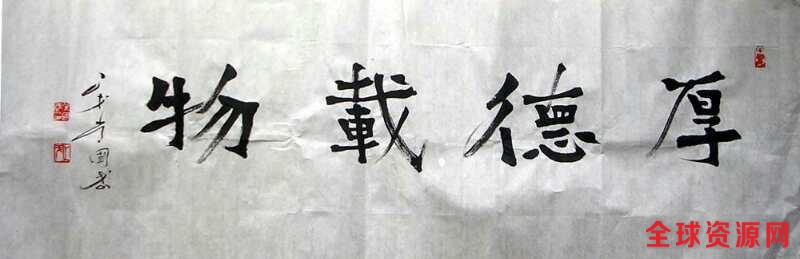 厚德載物
全球资源网